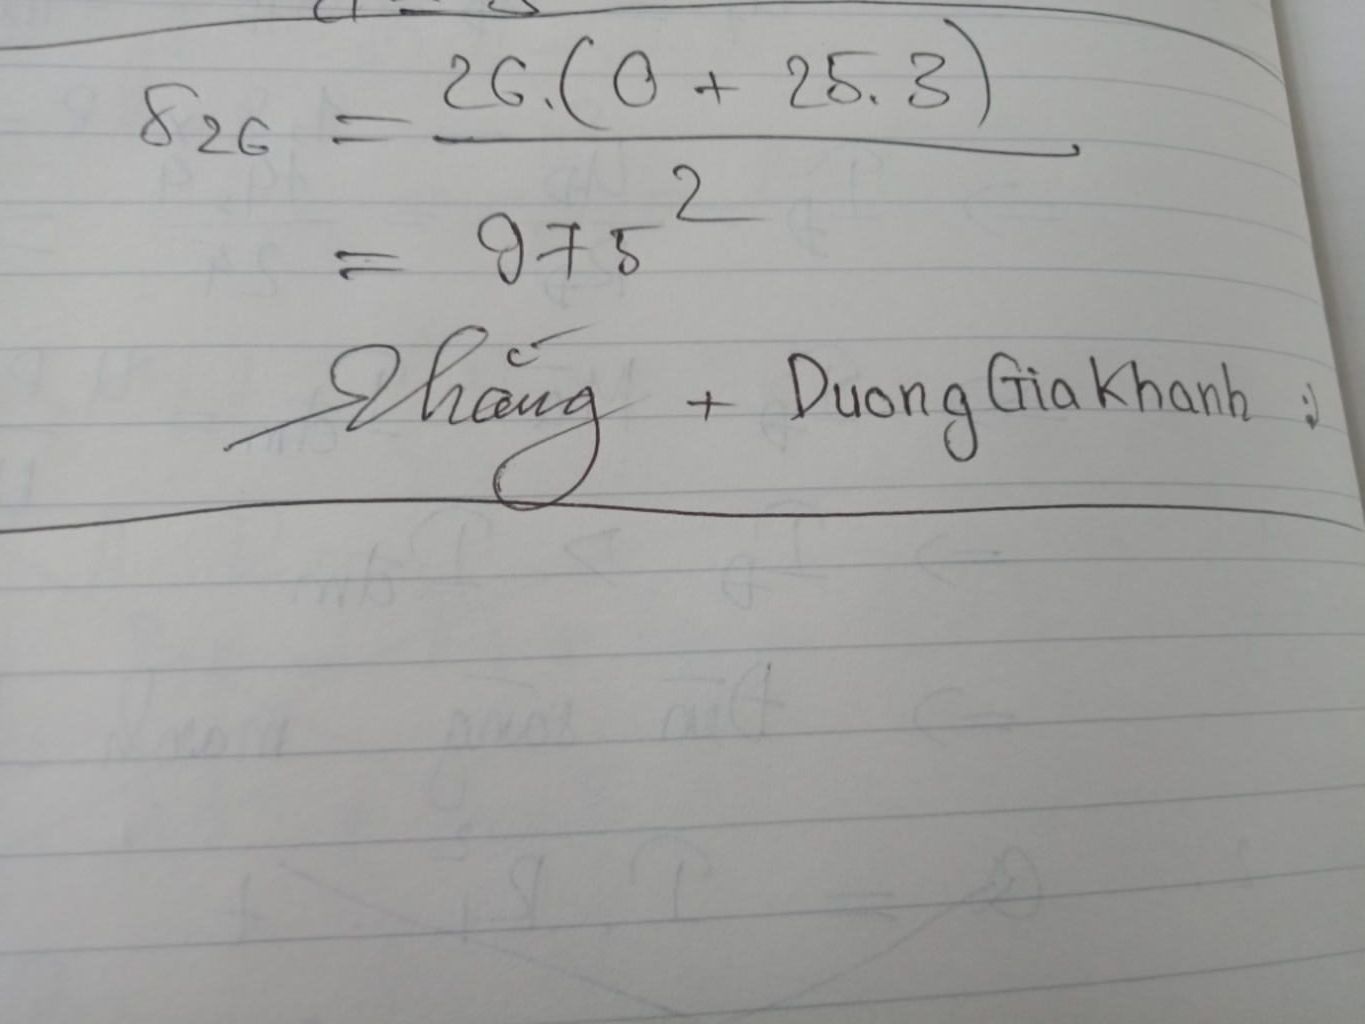 S26 = 26.(0 + 25.3)
2
= 975
Thắng + Duong Gia Khanh :)